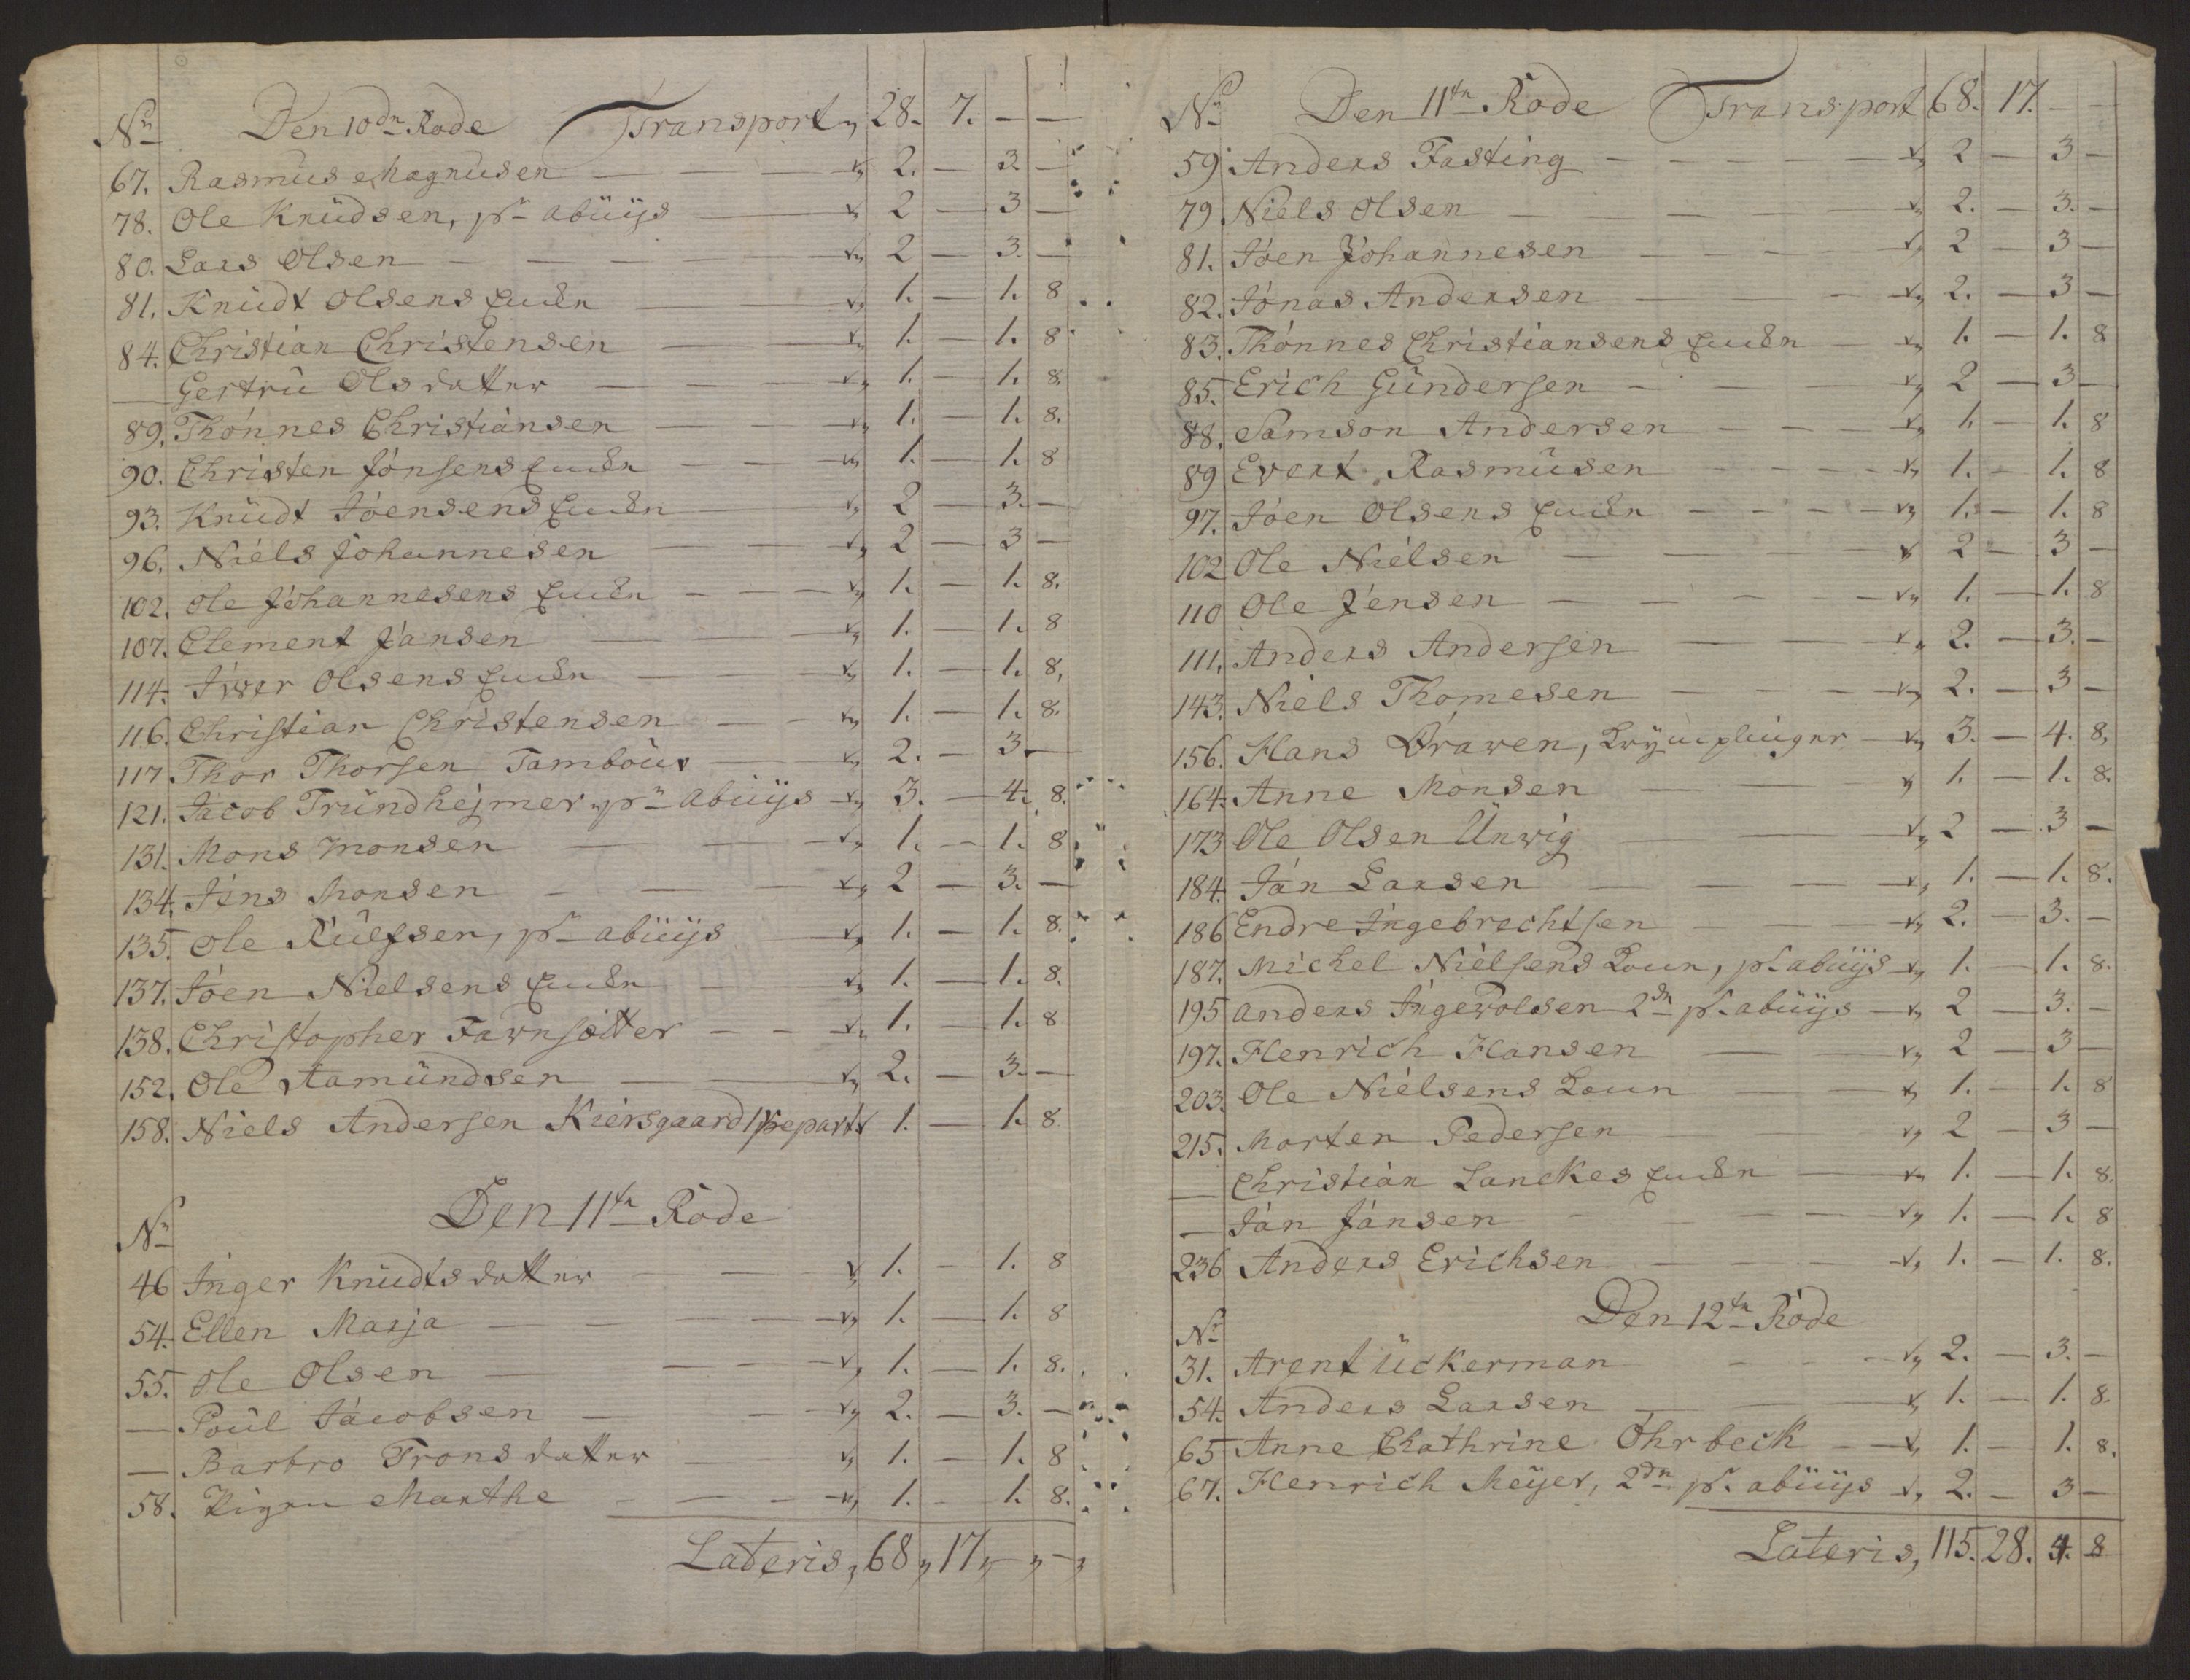 No Den 10de Rode Transport 28. 7. — —
67. Rasmus Magnusen — 2. — 3. —
78. Ole Knüdsen, pr abüijs — 2 — 3 —
80. Lars Olsen — 2 — 3. —
81. Knüdt Olsens Encken — 1. — 1. 8
84. Christian Christensen — 1. — 1. 8
— Gertru Olsdatter — 1. — 1. 8.
89. Thönnes Christiansen — 1. — 1. 8.
90. Christen Jonsens Encken — 1. — 1. 8
93. Knüdt Joensens Encken — 2 — 3. —
96. Niels Johannesen — 2 — 3 —
102. Ole Johannesens Encken — 1. — 1. 8.
107. Clement Jansen — 1. — 1. 8
114. Iwer Olsens Encken — 1. — 1. 8.
116. Christian Christensen — 1. — 1. 8.
117. Thor Thorsen Tambour — 2. — 3. —
121. Jacob Tründhejmer, pr abüijs — 3. — 4. 8.
131. Mons Monsen — 1. — 1. 8
134. Jens Monsen — 2 — 3. —
135. Ole , pr abüijs — 1. — 1. 8.
137. Joen Nielsens Encken — 1. — 1. 8.
138. Christopher — 1. — 1. 8
152. Ole Aamündsen — 2. — 3. —
158. Niels Andersen Kiersgaard 1. — 1. 8
No Den 11te Rode
46 Inger Knüdtsdatter — 1. — 1. 8
54. Ellen Marja — 1. — 1. 8
55. Ole Olsen — 1. — 1. 8.
— Poul Jacobsen — 2. — 3. —
— Barbro Tronsdatter — 1. — 1. 8
58. Pigen Marthe — 1. — 1. 8.
Lateris, 68, 17, — —
No Den 11te Rode Transport 68. 17. — —
59. Anders Fasting — 2 — 3 —
79 Niels Olsen — 2. — 3. —
81. Joen Johannesen — 2 — 3 —
82. Jonas Andersen — 2. — 3 —
83. Thönnes Christiansens Encken — 1. — 1. 8
85. Erich Gündersen — 2 — 3 —
88. Samson Andersen — 1. — 1. 8
89 Evert Rasmusen — 1. — 1. 8
97. Joen Olsens Encken — 1. — 1. 8
102 Ole Nielsen — 2 — 3 —
110 Ole Jensen — 1. — 1. 8
111. Anders Andersen — 2. — 3. —
143. Niels Thomesen — 2. — 3 —
156. Hans — 3. — 4. 8.
164. Anne Monsen — 1. — 1. 8.
173 Ole Olsen Ünwig — 2 — 3 —
184. Jan Larsen — 1. — 1. 8.
186 Endre Ingebrechtsen — 2. — 3. —
187. Michel Nielsens Koun, pr abüijs — 1. — 1. 8.
195 Anders Ingewolsen 2de pr abüijs — 2 — 3. —
197. Henrich Hansen — 2 — 3 —
203. Ole Nielsens Koun — 1. — 1. 8
215. Morten Pedersen — 2 — 3 —
— Christian Lanckes Encken — 1. — 1. 8.
— Jan Jansen — 1. — 1. 8
236 Anders Erichsen — 1. — 1. 8.
No Den 12te Rode
31. Arent Ückerman — 2. — 3. —
54. Anders Larsen — 1. — 1. 8.
65 Anne Chathrine Ohrbeck — 1. — 1. 8.
67. Henrich Meyer, 2de pr abüijs — 2. — 3 —
Lateris, 115. 28. 4. 8